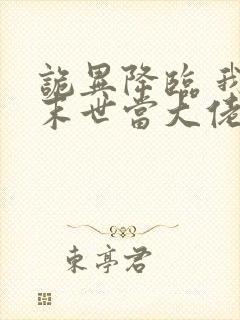 詭異降臨 我
末世當大佬
東亭君